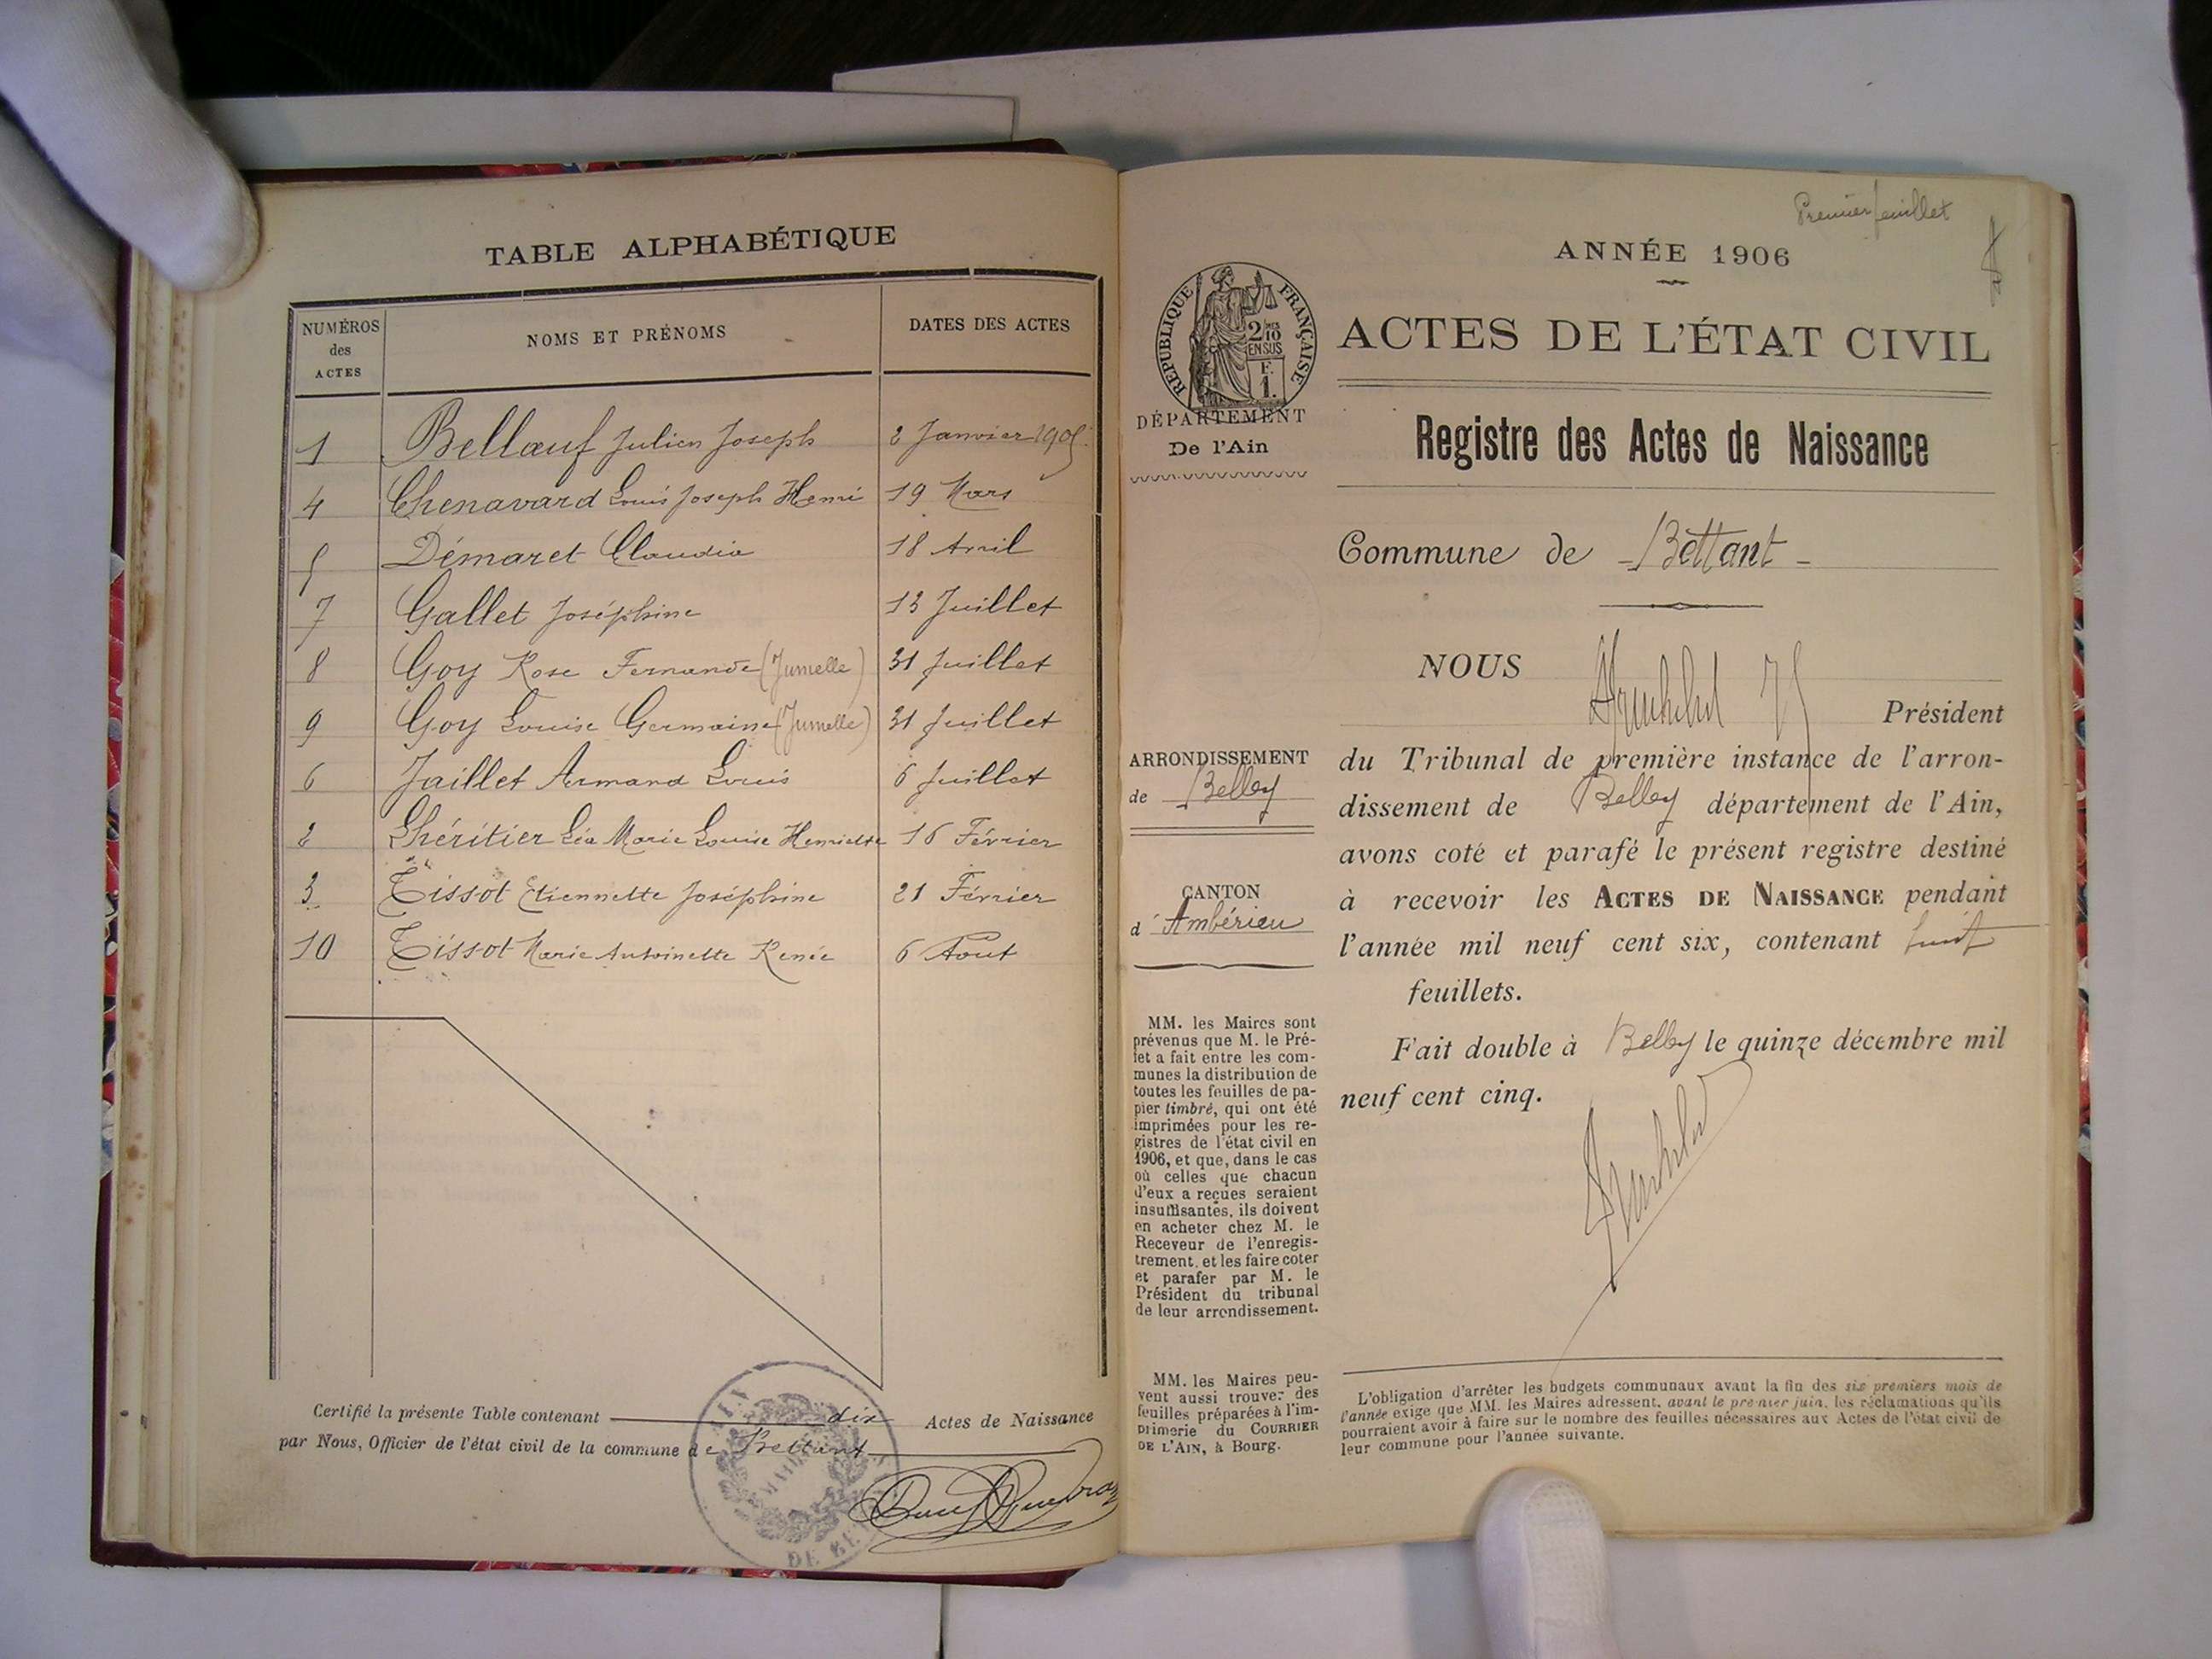 TABLE ALPHABÉTIQUE
NUMÉROS
des
ACTES
NOMS ET PRÉNOMS
DATES DES ACTES
1 Bellœuf Julien Joseph 2 Janvier 1905
4 Chenavard Louis Joseph Henri 19 Mars
5 Démaret Claudia 18 Avril
7 Gallet Joséphine 13 Juillet
8 Goy Rose Fernande (Jumelle) 31 Juillet
9 Goy Louise Germaine (Jumelle) 31 Juillet
6 Jaillet Armand Louis 6 Juillet
2 Lhéritier Léa Marie Louise Henriette 16 Février
3 Tissot Etiennette Joséphine 21 Février
10 Tissot Marie Antoinette Renée 6 Aout
Certifié la présente Table contenant dix Actes de Naissance
par Nous, Officier de l'état civil de la commune de Bettant
Premier feuillet
ANNÉE 1906
RÉPUBLIQUE FRANÇAISE
2/10
EN SUS
F.
1.
ACTES DE L'ÉTAT CIVIL
DÉPARTEMENT
De l'Ain
Registre des Actes de Naissance
Commune de Bettant
NOUS
Président
ARRONDISSEMENT
de Belley
du Tribunal de première instance de l'arron-
dissement de Belley département de l'Ain,
avons coté et parafé le présent registre destiné
à recevoir les ACTES DE NAISSANCE pendant
l'année mil neuf cent six, contenant huit
feuillets.
CANTON
d' Ambérieu
Fait double à Belley le quinze décembre mil
neuf cent cinq.
MM. les Maires sont
prévenus que M. le Pré-
fet a fait entre les com-
munes la distribution de
toutes les feuilles de pa-
pier timbré, qui ont été
imprimées pour les re-
gistres de l'état civil en
1906, et que, dans le cas
où celles que chacun
d'eux a reçues seraient
insuffisantes, ils doivent
en acheter chez M. le
Receveur de l'enregis-
trement, et les faire coter
et parafer par M. le
Président du tribunal
de leur arrondissement.
MM. les Maires peu-
vent aussi trouver des
feuilles préparées à l'im-
primerie du COURRIER
DE L'AIN, à Bourg.
L'obligation d'arrêter les budgets communaux avant la fin des six premiers mois de
l'année exige que MM. les Maires adressent, avant le premier juin, les réclamations qu'ils
pourraient avoir à faire sur le nombre des feuilles nécessaires aux Actes de l'état civil de
leur commune pour l'année suivante.